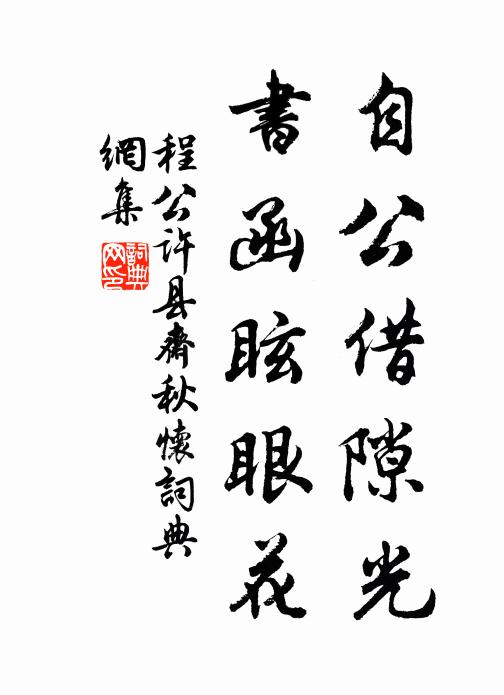 自公借隙光
書函眩眼花
程公许县齋秋懷詞典
網集
詞典网印